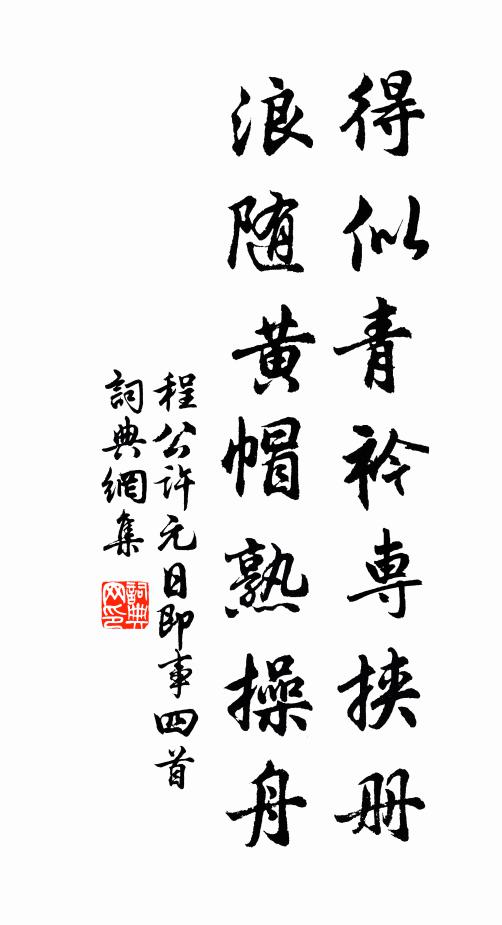 得似青衿専挟册
浪随黄帽熟操舟
程公許元日即事四首
詞典網集
詞典网印